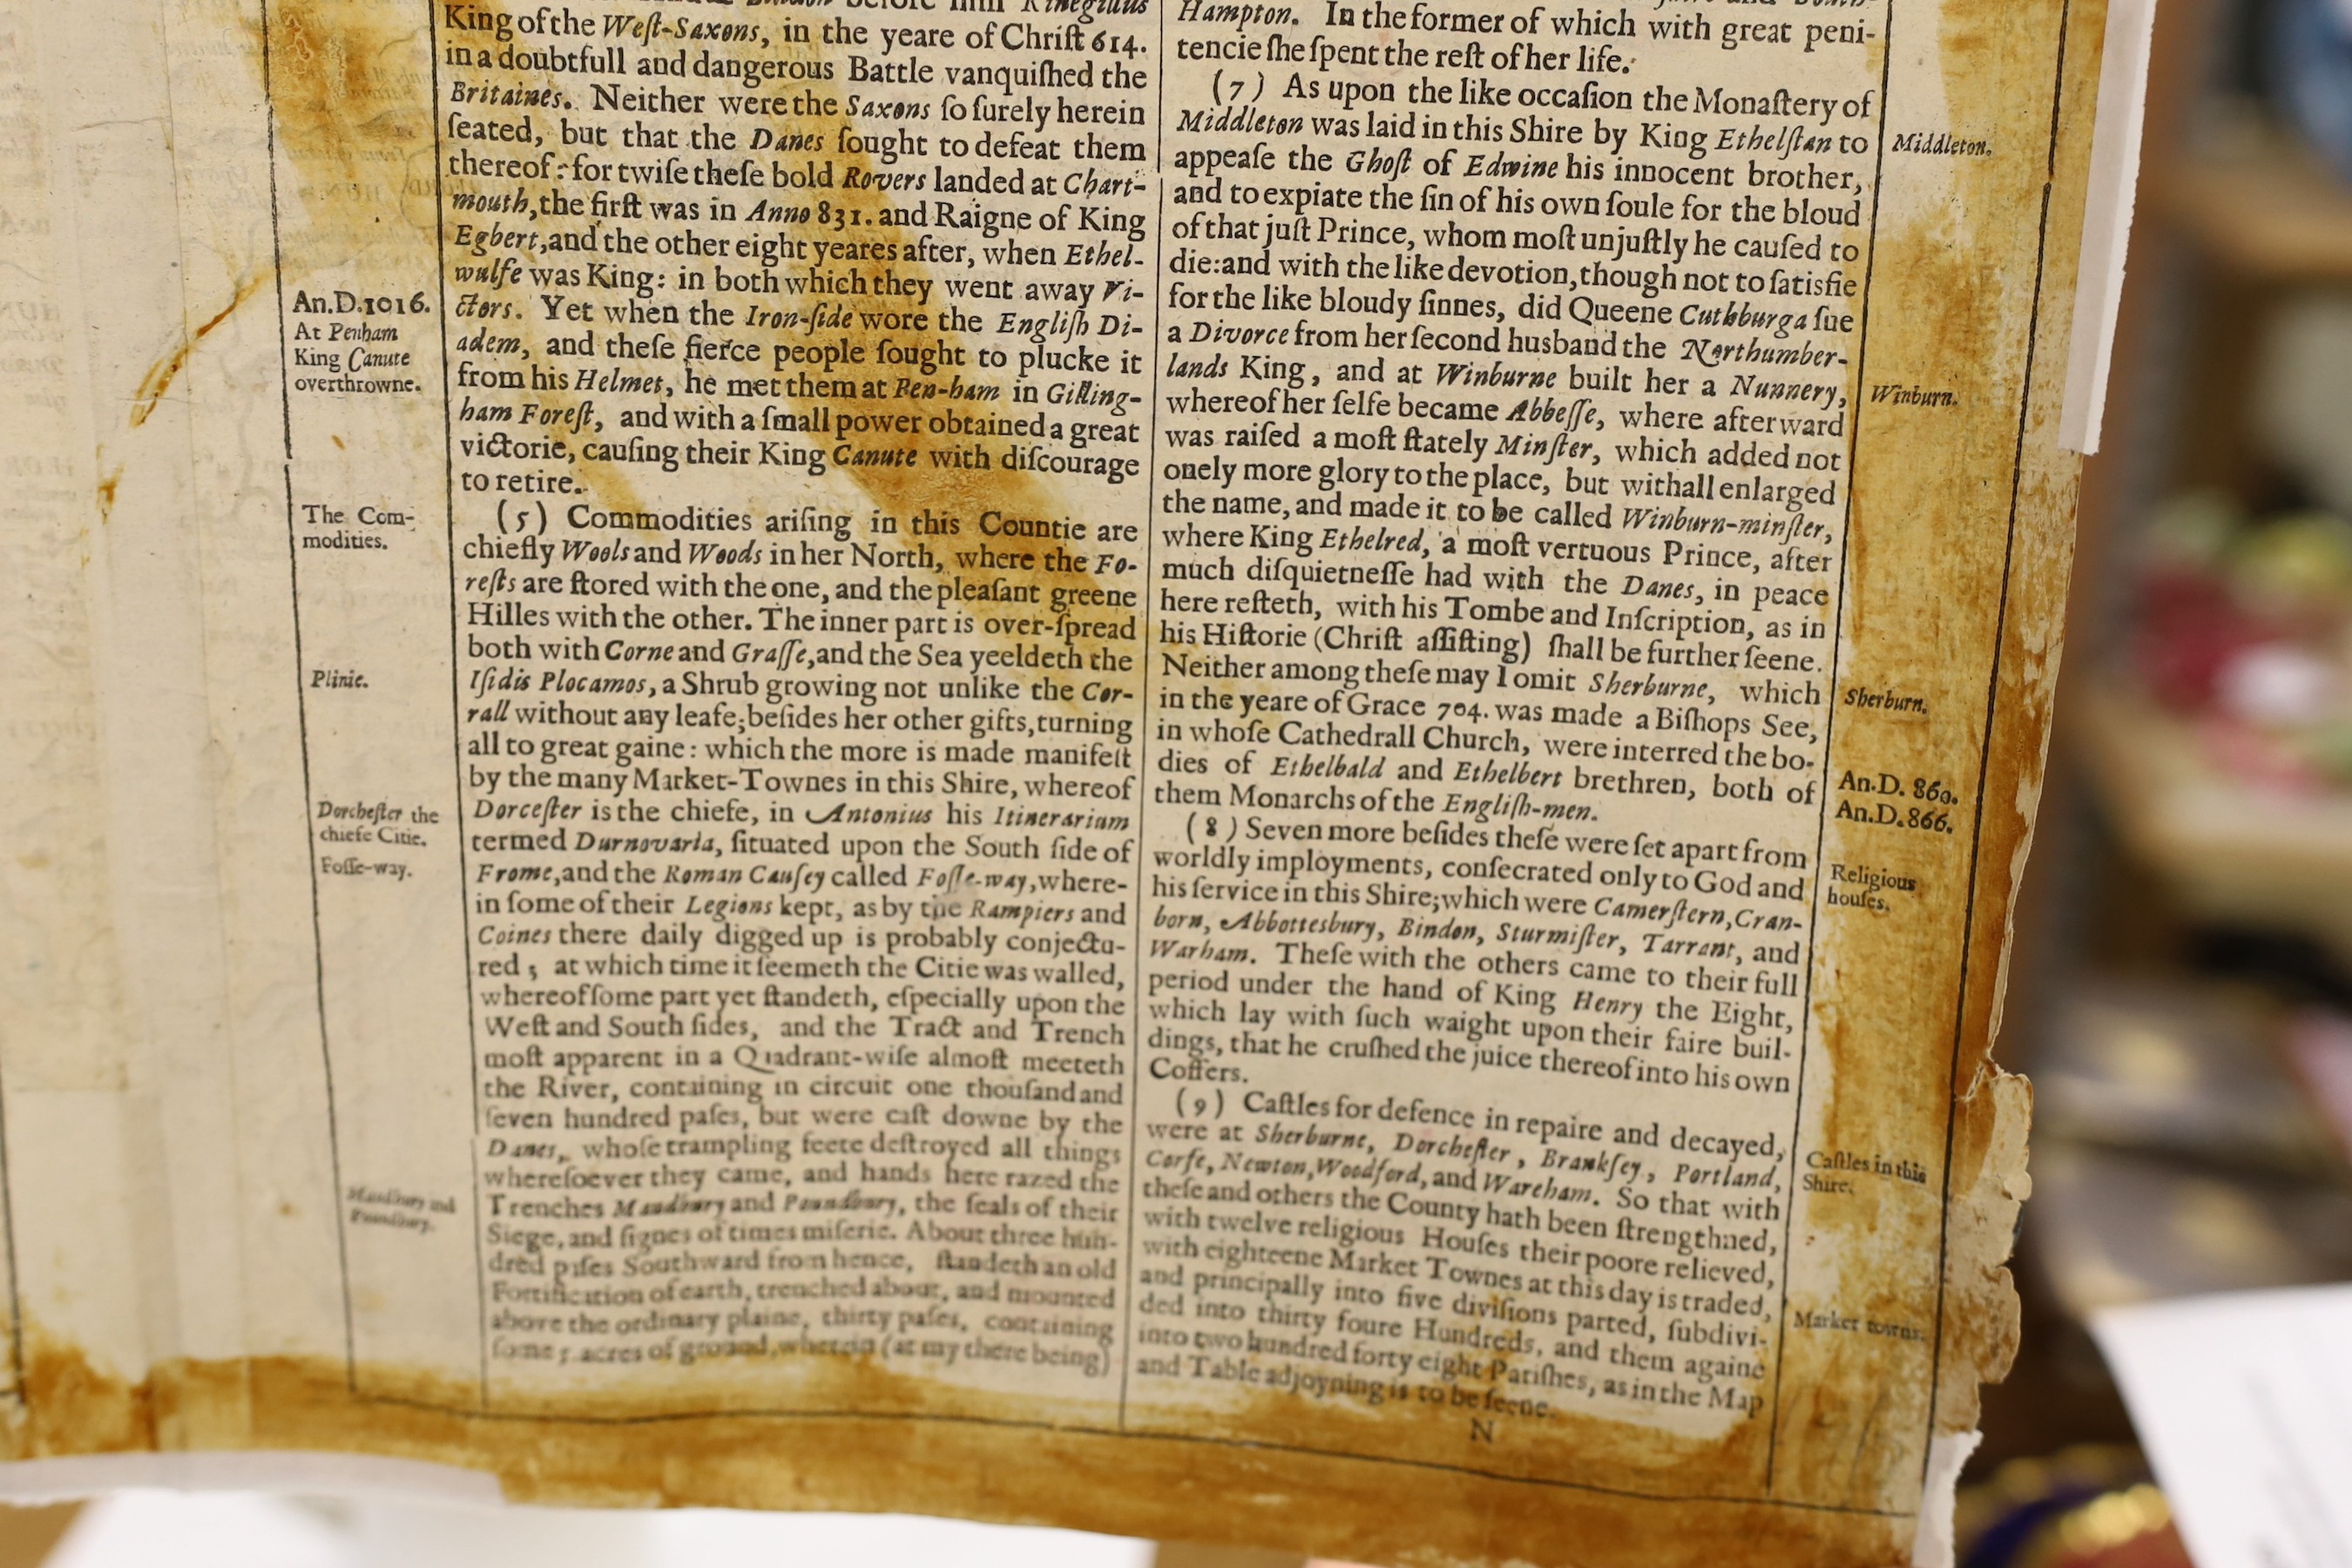 King of the Weſt-Saxons, in the yeare of Chriſt 614.
in a doubtfull and dangerous Battle vanquiſhed the
Britaines. Neither were the Saxons ſo ſurely herein
ſeated, but that the Danes ſought to defeat them
thereof: for twiſe theſe bold Rovers landed at Chart-
mouth, the firſt was in Anno 831. and Raigne of King
Egbert, and the other eight yeares after, when Ethel-
wulfe was King: in both which they went away Vi-
ctors. Yet when the Iron-ſide wore the Engliſh Di-
adem, and theſe fierce people ſought to plucke it
from his Helmet, he met them at Pen-ham in Gilling-
ham Foreſt, and with a ſmall power obtained a great
victorie, cauſing their King Canute with diſcourage
to retire.
An.D.1016.
At Penham
King Canute
overthrowne.
(5) Commodities ariſing in this Countie are
chiefly Wools and Woods in her North, where the Fo-
reſts are ſtored with the one, and the pleaſant greene
Hilles with the other. The inner part is over-ſpread
both with Corne and Graſſe, and the Sea yeeldeth the
Iſidis Plocamos, a Shrub growing not unlike the Cor-
rall without any leafe; beſides her other gifts, turning
all to great gaine: which the more is made manifeſt
by the many Market-Townes in this Shire, whereof
Dorceſter is the chiefe, in Antonius his Itinerarium
termed Durnovaria, ſituated upon the South ſide of
Frome, and the Roman Cauſey called Foſſe-way, where-
in ſome of their Legions kept, as by the Rampiers and
Coines there daily digged up is probably conjectu-
red; at which time it ſeemeth the Citie was walled,
whereof ſome part yet ſtandeth, eſpecially upon the
Weſt and South ſides, and the Tract and Trench
moſt apparent in a Quadrant-wiſe almoſt meeteth
the River, containing in circuit one thouſand and
ſeven hundred paſes, but were caſt downe by the
Danes, whoſe trampling feete deſtroyed all things
whereſoever they came, and hands here razed the
Trenches Maudbury and Poundbury, the ſeals of their
Siege, and ſignes of times miſerie. About three hun-
dred paſes Southward from hence, ſtandeth an old
Fortification of earth, trenched about, and mounted
above the ordinary plaine, thirty paſes, containing
ſome 5 acres of ground, wherein (at my there being)
The Com-
modities.
Plinie.
Dorcheſter the
chiefe Citie.
Foſſe-way.
Maudbury and
Poundbury.
Hampton. In the former of which with great peni-
tencie ſhe ſpent the reſt of her life.
(7) As upon the like occaſion the Monaſtery of
Middleton was laid in this Shire by King Ethelſtan to
appeaſe the Ghoſt of Edwine his innocent brother,
and to expiate the ſin of his own ſoule for the bloud
of that juſt Prince, whom moſt unjuſtly he cauſed to
die: and with the like devotion, though not to ſatisfie
for the like bloudy ſinnes, did Queene Cuthburga ſue
a Divorce from her ſecond husband the Northumber-
lands King, and at Winburne built her a Nunnery,
whereof her ſelfe became Abbeſſe, where afterward
was raiſed a moſt ſtately Minſter, which added not
onely more glory to the place, but withall enlarged
the name, and made it to be called Winburn-minſter,
where King Ethelred, a moſt vertuous Prince, after
much diſquietneſſe had with the Danes, in peace
here reſteth, with his Tombe and Inſcription, as in
his Hiſtorie (Chriſt aſſiſting) ſhall be further ſeene.
Neither among theſe may I omit Sherburne, which
in the yeare of Grace 704. was made a Biſhops See,
in whoſe Cathedrall Church, were interred the bo-
dies of Ethelbald and Ethelbert brethren, both of
them Monarchs of the Engliſh-men.
Middleton.
Winburn.
Sherburn.
An.D. 860.
An.D. 866.
(8) Seven more beſides theſe were ſet apart from
worldly imployments, conſecrated only to God and
his ſervice in this Shire; which were Camerſtern, Cran-
born, Abbottesbury, Bindon, Sturmiſter, Tarrant, and
Warham. Theſe with the others came to their full
period under the hand of King Henry the Eight,
which lay with ſuch waight upon their faire buil-
dings, that he cruſhed the juice thereof into his own
Coffers.
Religious
houſes.
(9) Caſtles for defence in repaire and decayed,
were at Sherburne, Dorcheſter, Brankſey, Portland,
Corfe, Newton, Woodford, and Wareham. So that with
theſe and others the County hath been ſtrengthned,
with twelve religious Houſes their poore relieved,
with eighteene Market Townes at this day is traded,
and principally into five diviſions parted, ſubdivi-
ded into thirty foure Hundreds, and them againe
into two hundred forty eight Pariſhes, as in the Map
and Table adjoyning is to be ſeene.
Caſtles in this
Shire.
Market towns.
N